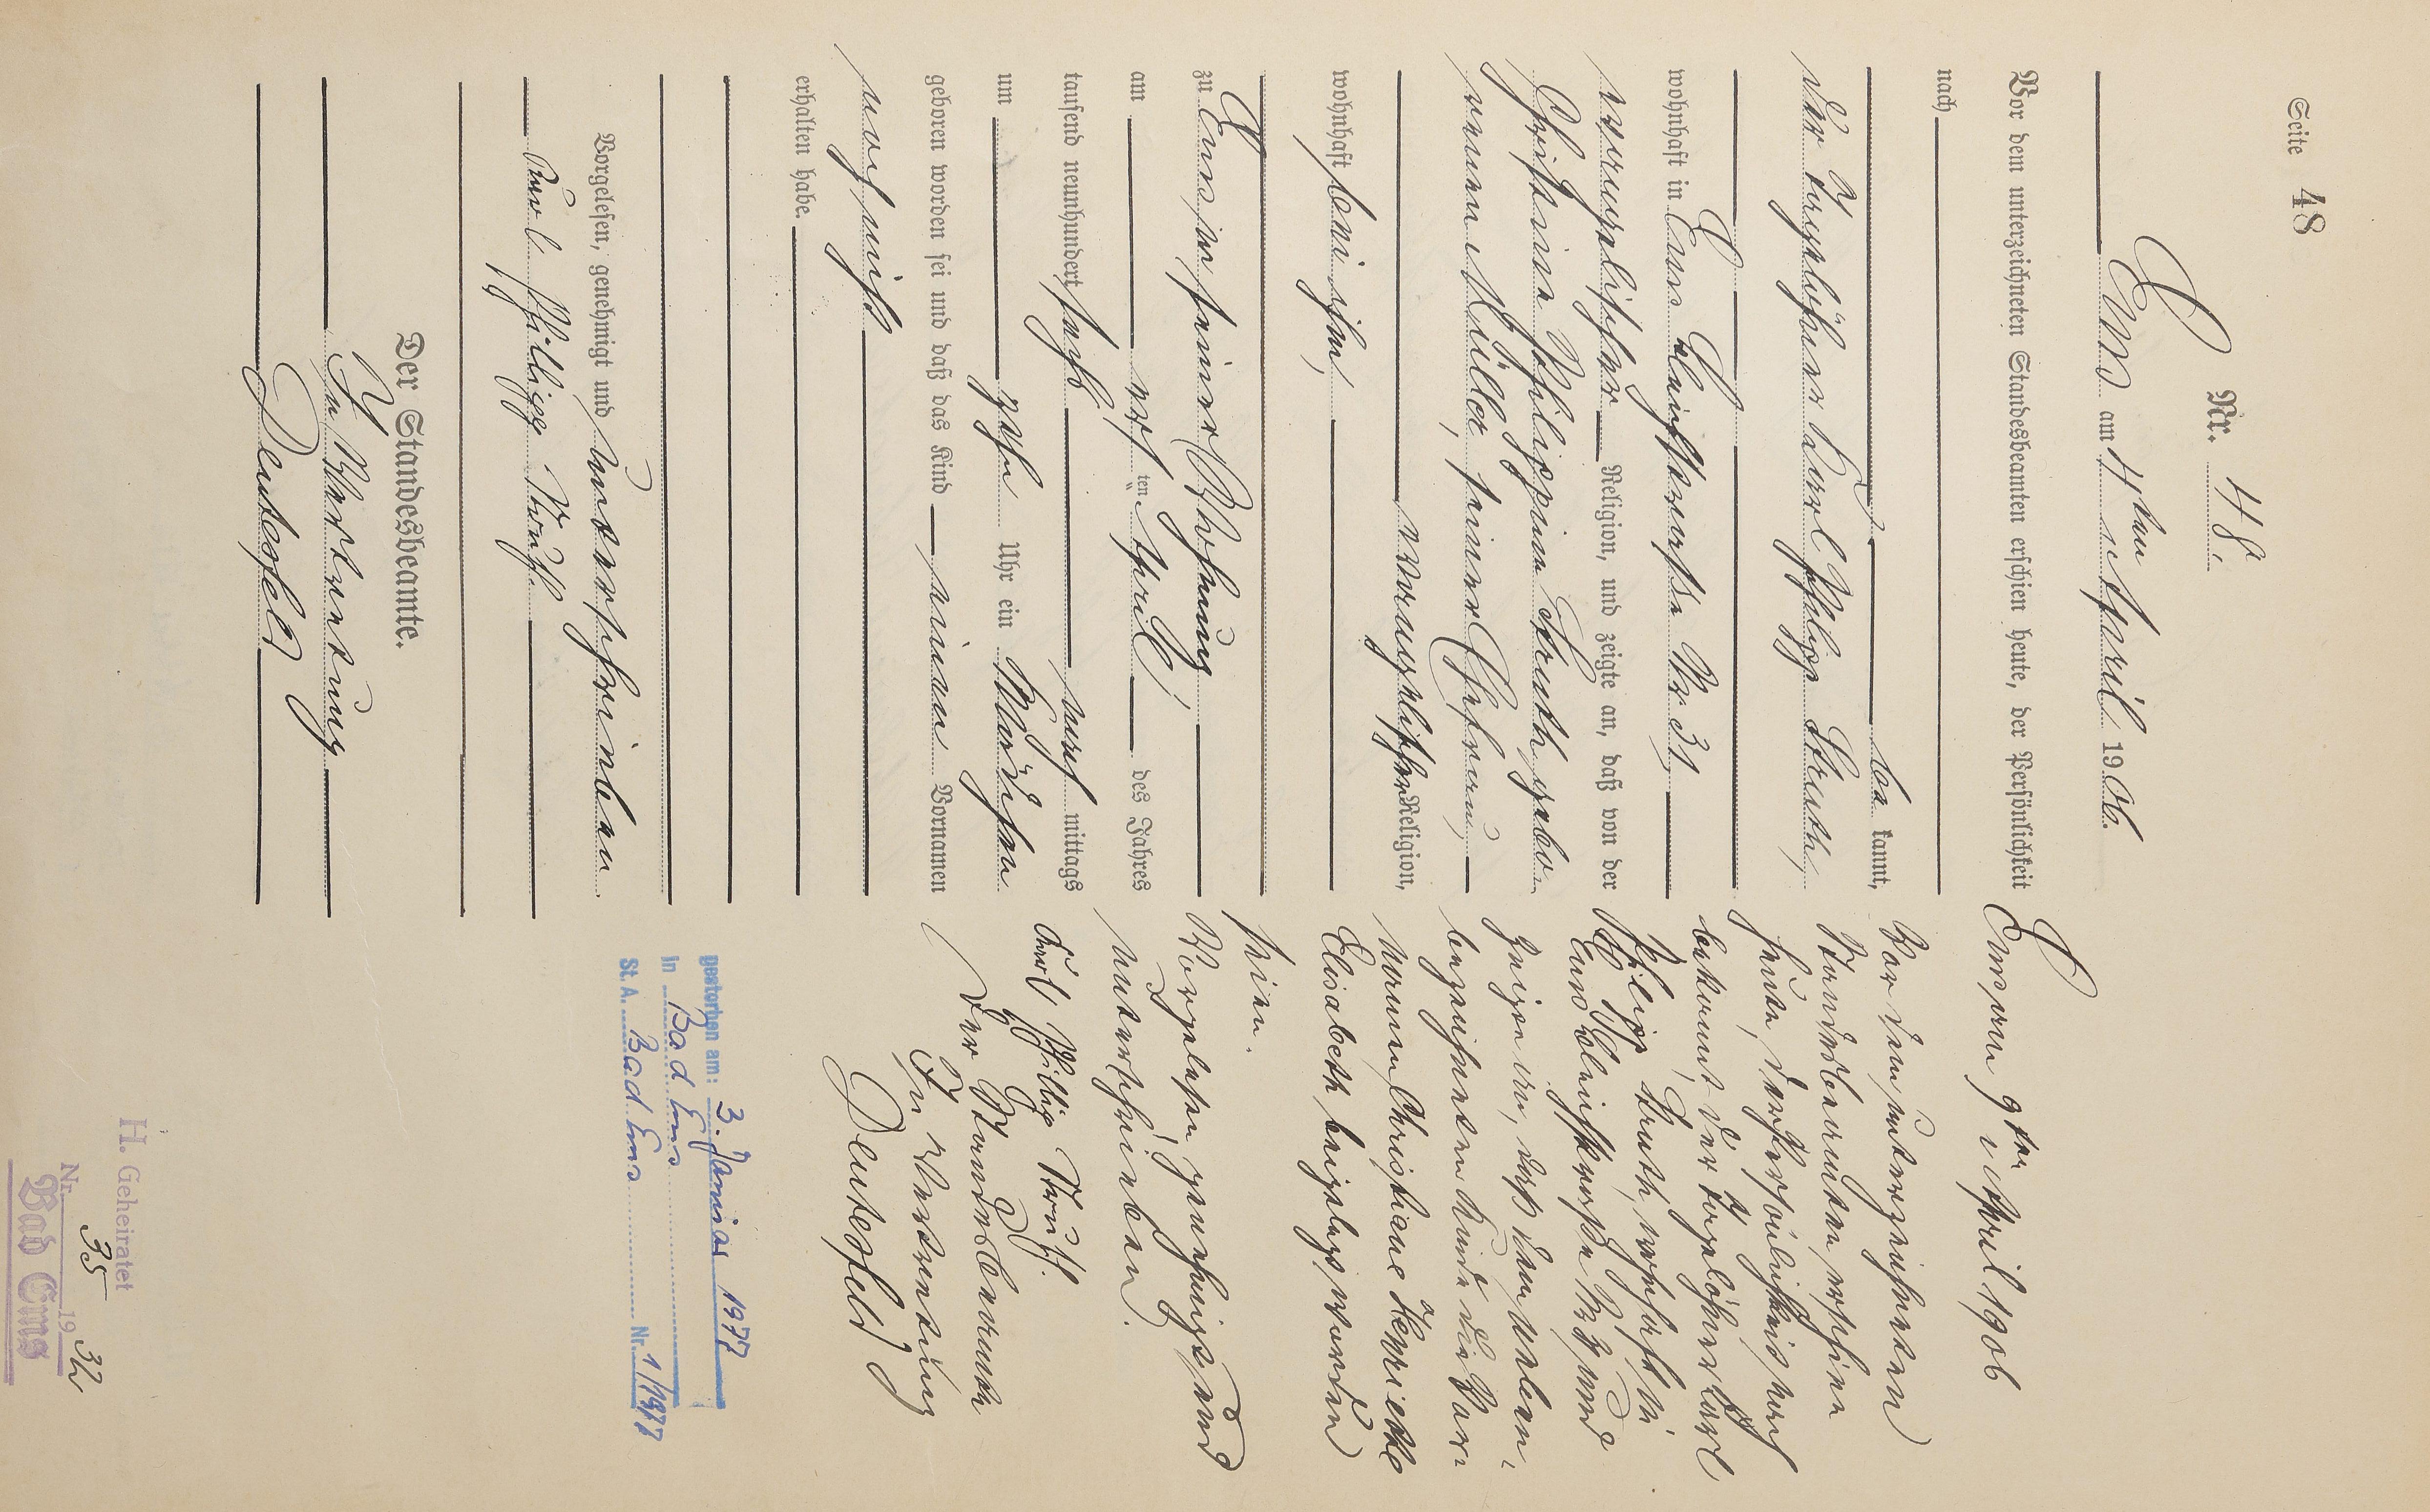 Seite 48
Nr. 48.
Ems am 4ten April 1906.
Vor dem unterzeichneten Standesbeamten erschien heute, der Persönlichkeit
nach
be kannt,
der Tagelöhner Carl Philipp Struth,
wohnhaft in Ems Kleinstraße Nr 31
evangelischer Religion, und zeigte an, daß von der
Christine Philippine Struth gebo-
renen Müller, seiner Ehefrau,
evangelischer Religion,
wohnhaft bei ihm,
zu Ems in seiner Wohnung
am ersten April des Jahres
tausend neunhundert sechs nach mittags
um zehn Uhr ein Mädchen
geboren worden sei und daß das Kind einen Vornamen
noch nicht
erhalten habe.
Vorgelesen, genehmigt und unterschrieben
Karl Philipp Struth.
Der Standesbeamte.
In Vertretung
Deutesfeld
Ems, am 9ten April 1906
Vor dem unterzeichneten
Standesbeamten erschien
heute, der Persönlichkeit nach
bekannt, der Tagelöhner Carl
Philipp Struth, wohnhaft in
Ems Kleinstraße 31 und
zeigte an, daß dem neben-
bezeichneten Kinde die Vor-
namen Christiane Henriette
Elisabeth beigelegt worden
seien.
Vorgelesen genehmigt und
unterschrieben.
Karl Philip Struth.
Der Standesbeamte
In Vertretung
Deutesfeld
gestorben am: 3. Januar 1977
in Bad Ems
St. A. Bad Ems Nr. 1/1977
H. Geheiratet
35
Nr. 19 32
Bad Ems